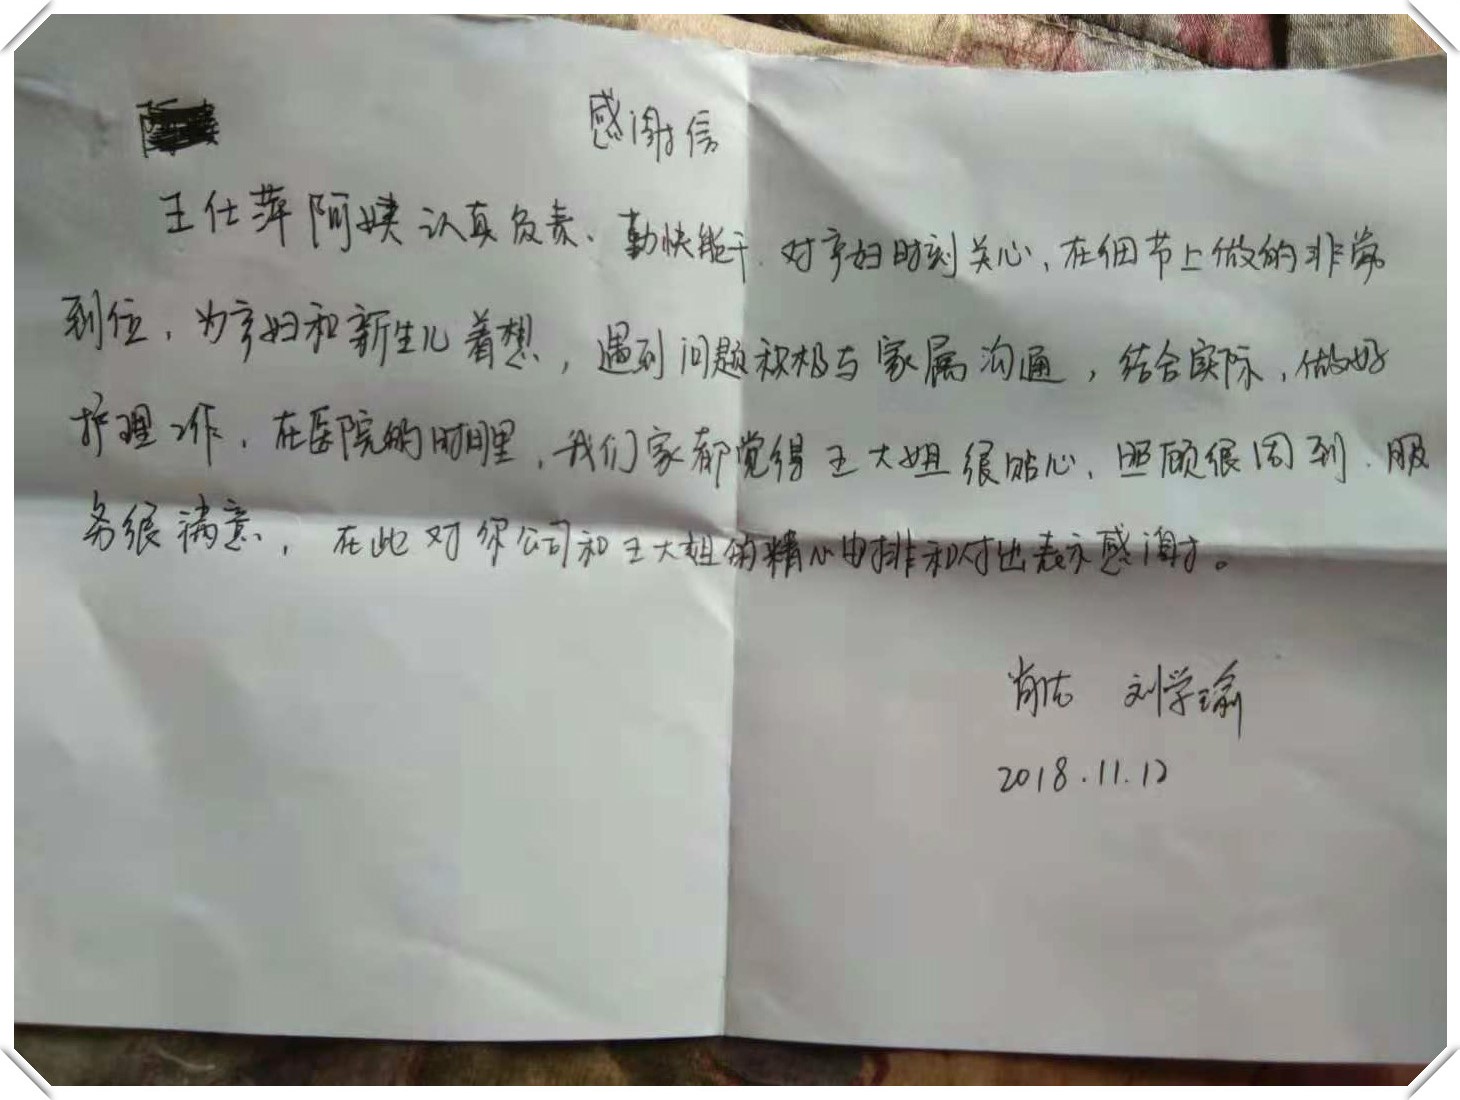 感谢信
王仕萍阿姨认真负责、勤快能干、对产妇时刻关心,在细节上做的非常
到位,为产妇和新生儿着想,遇到问题积极与家属沟通,结合实际,做好
护理工作,在医院的时间里,我们家都觉得王大姐很贴心,照顾很周到,服
务很满意,在此对你公司和王大姐的精心安排和付出表示感谢。
刘学瑜
2018.11.12